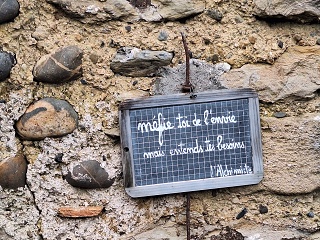 méfie toi de l'envie
mais entends tes besoins
l'Alchimiste